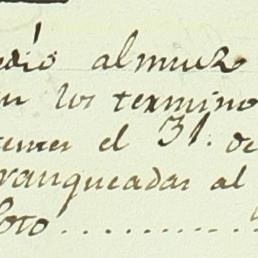 edió almuz
en los termino
temer el 31. de
ranqueadas al
Soto